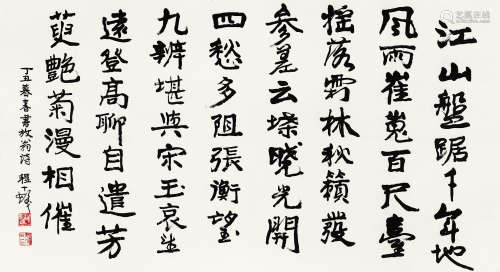 江山盤踞千年地
風雨崔嵬百尺臺
摇落霜林秋籟發
参差云堞曉光開
四愁多阻張衡望
九辨堪與宋玉哀
遠登高聊自遣芳
萸艷菊漫相催
丁丑暮春書放翁詩